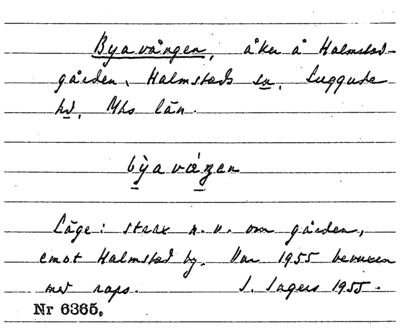 Byavången, åker å Halmstad-
gården, Halmstads sn, Luggude
hd, Mhs län.
bỳa våŋen
Läge: strax n.v. om gården,
emot Halmstad by. Var 1955 bevuxen
med raps. J. Sagers 1955.
Nr 6365.